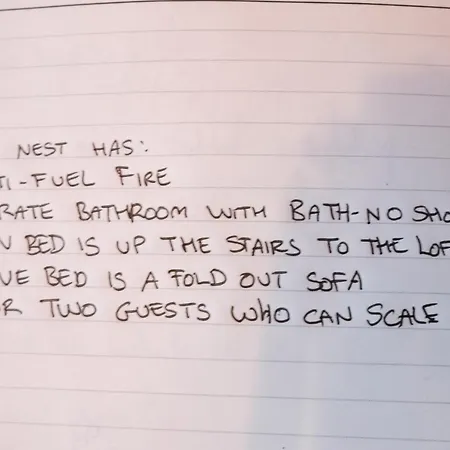 NEST HAS:
TI-FUEL FIRE
RATE BATHROOM WITH BATH-NO SHO
BED IS UP THE STAIRS TO THE LOF
UE BED IS A FOLD OUT SOFA
R TWO GUESTS WHO CAN SCALE